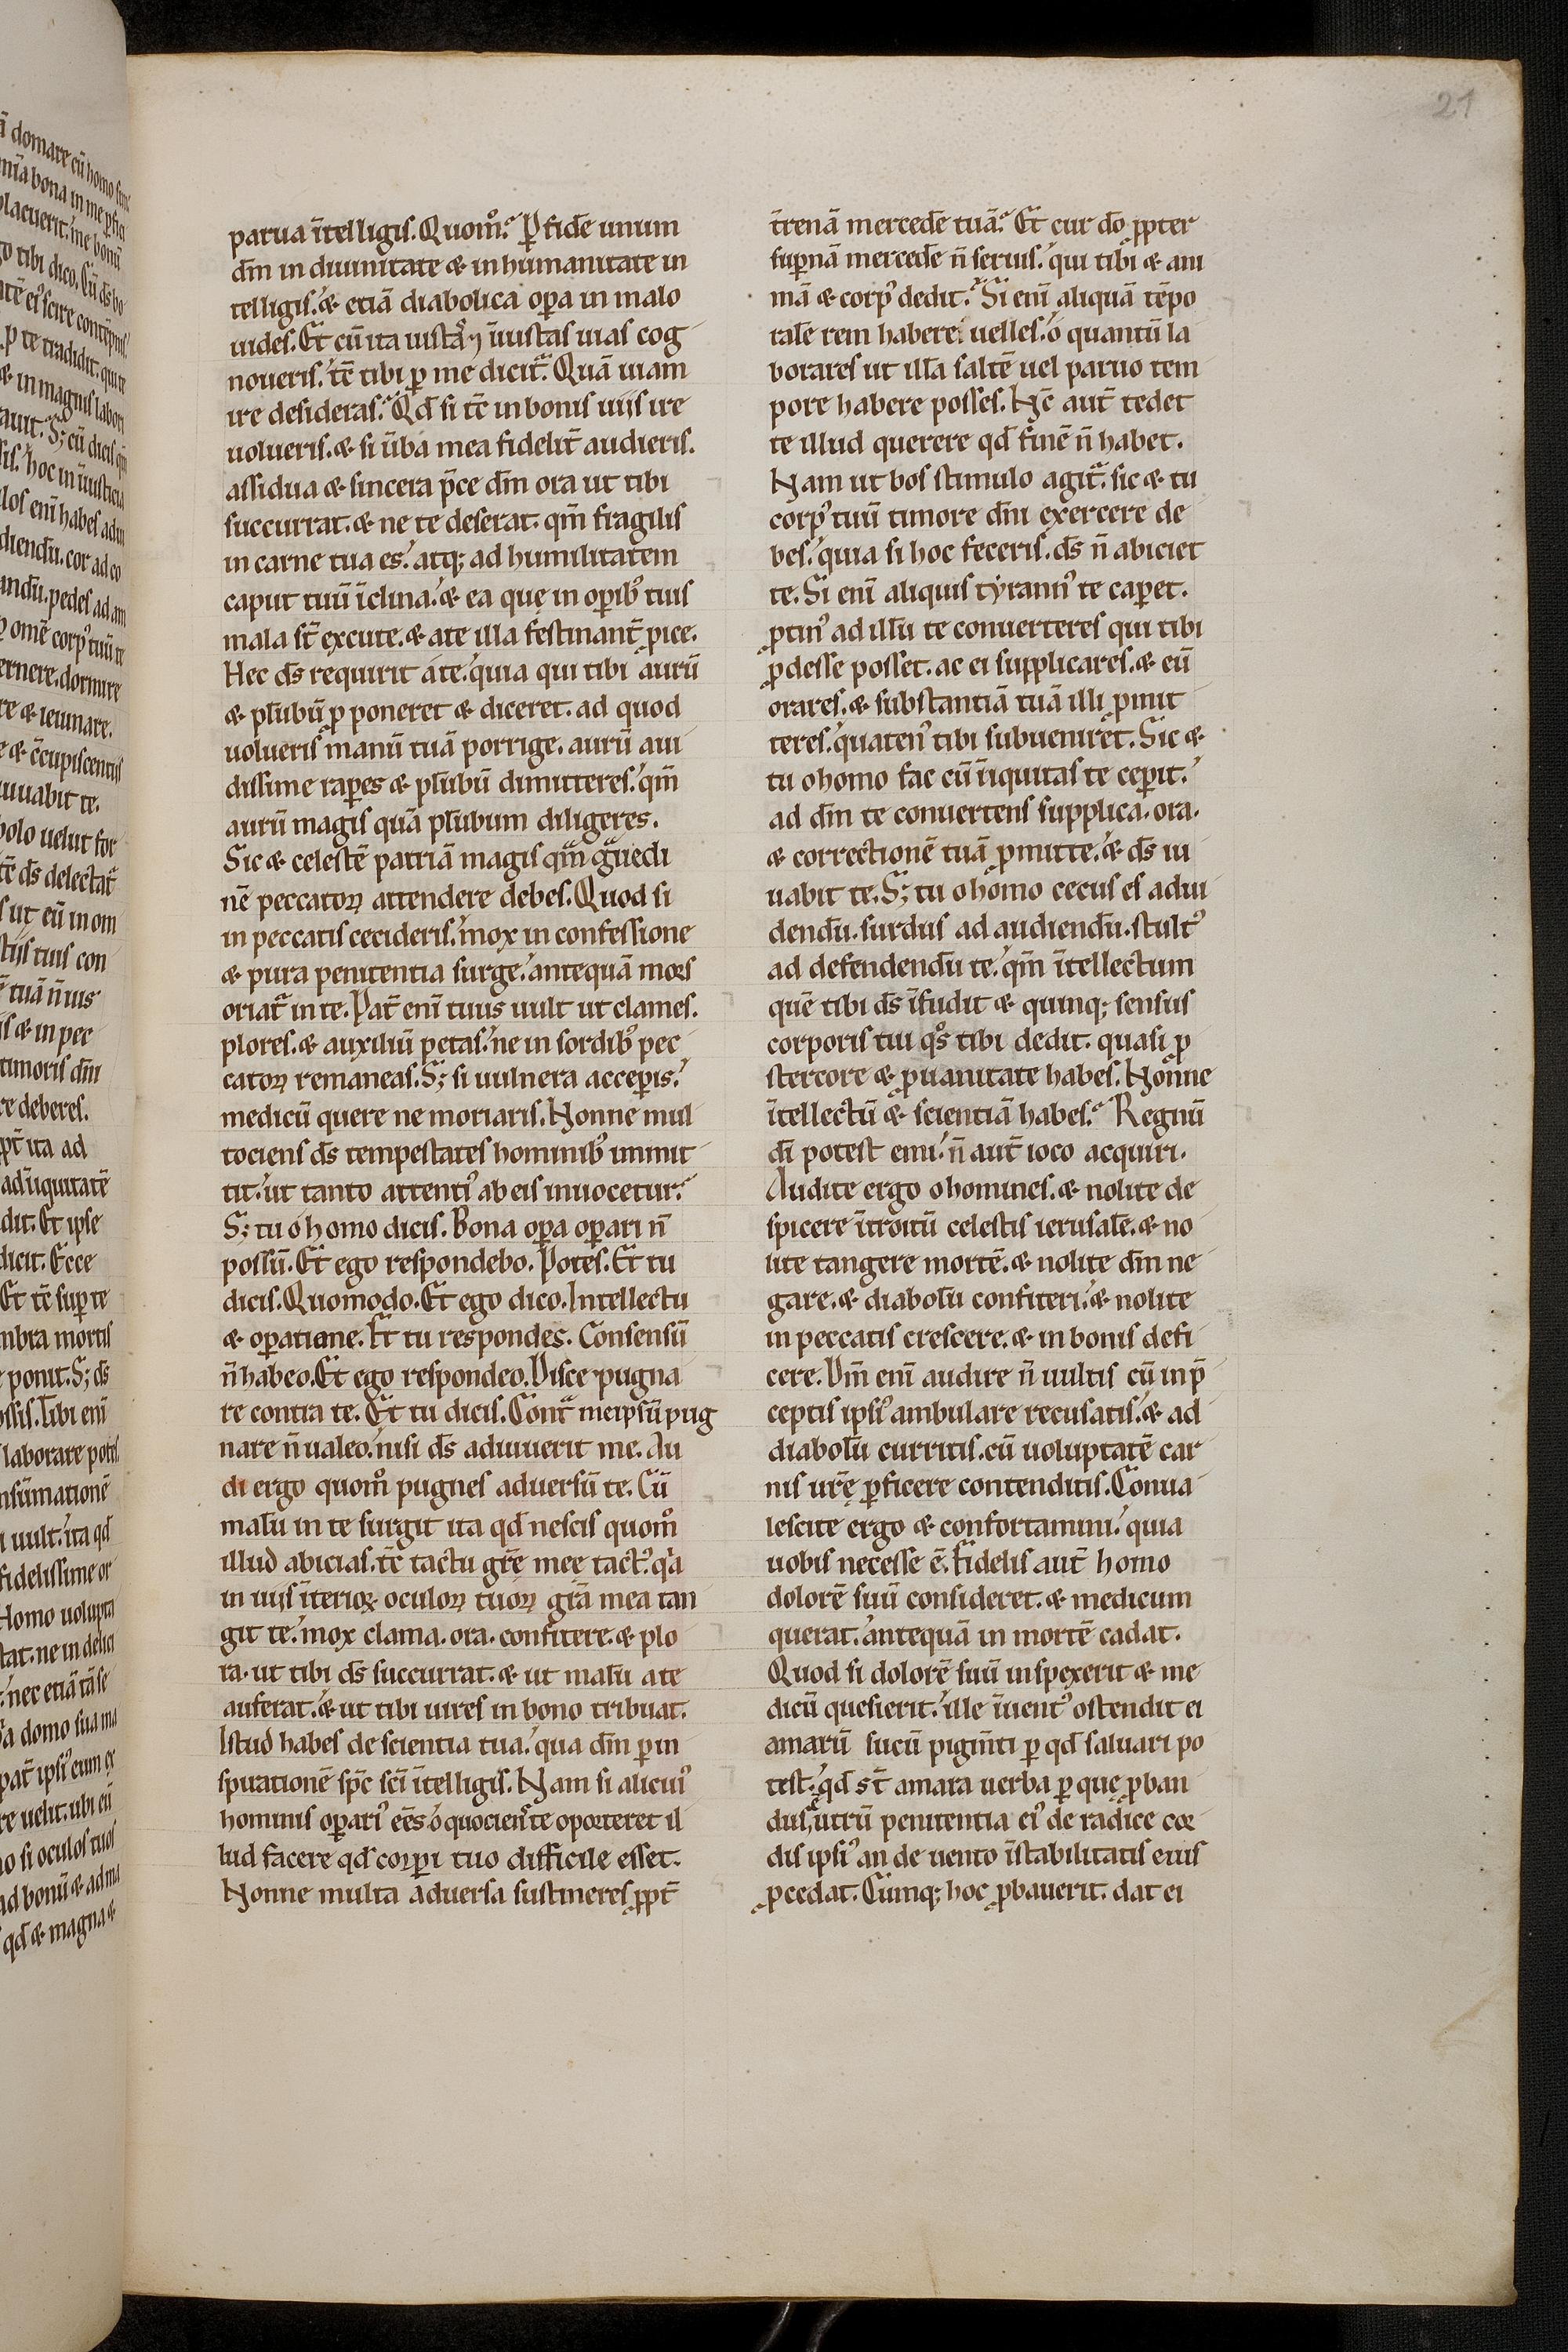 21
parua ītelligis. Quom̊? P fidē unum
dm̄ in diuinitate & in humanitate in
telligis. & etiā diabolica opa in malo
uides. Et cū ita iustaˢ ⁊ iniustas uias cog
noueris. tē tibi p me dicit᷑. Quā uiam
ire desideras? Qd̄ si tē in bonis uiis ire
uolueris. & si ūba mea fidelit̄ audieris.
assidua & sincera p̄ce dm̄ ora ut tibi
succurrat. & ne te deserat. qm̄ fragilis
in carne tua es. atq; ad humilitatem
caput tuū īclina. & ea quę in opib᷒ tuis
mala st̄ excute. & a te illa festinant̄ ꝓice.
Hec ds̄ requirit a te. quia qui tibi aurū
& plūbū ꝓponeret & diceret. ad quod
uolueris manū tuā porrige. aurū aui
dissime rapes & plūbū dimitteres. qm̄
aurū magis quā plūbum diligeres.
Sic & celestē patriā magis qm̄ g̃uedi
nē peccatoꝝ attendere debes. Quod si
in peccatis cecideris. mox in confessione
& pura penitentia surge. antequā mors
oriat᷑ in te. Pat̄ enī tuus uult ut clames.
plores. & auxiliū petas. ne in sordib᷒ pec
catoꝝ remaneas. S; si uulnera acceperis.
medicū quere ne moriaris. Nonne mul
tociens ds̄ tempestates hominib᷒ inmit
tit. ut tanto attenti᷒ ab eis inuocetur?
S; tu o homo dicis. Bona opa opari n̄
possū. Et ego respondebo. Potes. Et tu
dicis. Quomodo. Et ego dico. Intellectu
& opatione. Et tu respondes. Consensū
n̄ habeo. Et ego respondeo. Disce pugna
re contra te. Et tu dicis. Contᷓ meipsū pug
nare n̄ ualeo. nisi ds̄ adiuuerit me. Au
di ergo quom̊ pugnes aduersū te. Cū
malū in te surgit ita qd̄ nescis quom̊
illud abicias. tē tactu grē meę tact᷒. qͣa
in uiis īterioꝝ oculoꝝ tuoꝝ grā mea tan
git te. mox clama. ora. confitere. & plo
ra. ut tibi ds̄ succurrat. & ut malū a te
auferat. & ut tibi uires in bono tribuat.
Istud habes de scientia tua. qua dm̄ p in
spirationē spc̄ sc̄i ītelligis. Nam si alicui᷒
hominis opari᷒ eēs. o quociens te oporteret il
lud facere qd̄ corpi tuo difficile esset.
Nonne multa aduersa sustineres ꝓpt̄
t̄renā mercedē tuā? Et cur dō ꝓpter
supnā mercedē n̄ seruis. qui tibi & ani
mā & corp᷒ dedit? Si enī aliquā tēpo
ralē rem habere uelles. o quantū la
borares ut illā saltē uel paruo tem
pore habere posses. Nc̄ aut̄ tedet
te illud querere qd̄ finē n̄ habet.
Nam ut bos stimulo agit᷑. sic & tu
corp᷒ tuū timore dn̄i exercere de
bes. quia si hoc feceris. ds̄ n̄ abiciet
te. Si enī aliquis tyrann᷒ te capet.
ꝓtin᷒ ad illū te conuerteres qui tibi
ꝓdesse posset. ac ei supplicares. & eū
orares. & substantiā tuā illi ꝓmit
teres. quaten᷒ tibi subueniret. Sic &
tu o homo fac cū īiquitas te ceperit.
ad dm̄ te conuertens supplica. ora.
& correctionē tuā ꝓmitte. & ds̄ iu
uabit te. S; tu o homo cecus es ad ui
dendū. surdus ad audiendū. stult᷒
ad defendendū te. qm̄ ītellectum
quē tibi ds̄ īfudit & quinq; sensus
corporis tui qͦs tibi dedit. quasi p
stercore & ꝓ uanitate habes. Nonne
ītellectū & scientiā habes? Regnū
dī potest emi. n̄ aut̄ ioco acquiri.
Audite ergo o homines. & nolite de
spicere ītroitū celestis ierusalē. & no
lite tangere mortē. & nolite dm̄ ne
gare. & diabolū confiteri. & nolite
in peccatis crescere. & in bonis defi
cere. Dm̄ enī audire n̄ uultis cū in p̄
ceptis ipsi᷒ ambulare recusatis. & ad
diabolū curritis. cū uoluptatē car
nis urę̄ pficere contenditis. Conua
lescite ergo & confortamini. quia
uobis necesse ē. Fidelis aut̄ homo
dolorē suū consideret. & medicum
querat. antequā in mortē cadat.
Quod si dolorē suū inspexerit & me
dicū quesierit. ille īuent᷒ ostendit ei
amarū sucū pigm̄ti p qd̄ saluari po
test. qd̄ st̄ amara uerba p quę ꝓban
dus ē utrū penitentia ei᷒ de radice cor
dis ipsi᷒ an de uento īstabilitatis eius
ꝓcedat. Cumq; hoc ꝓbauerit. dat ei